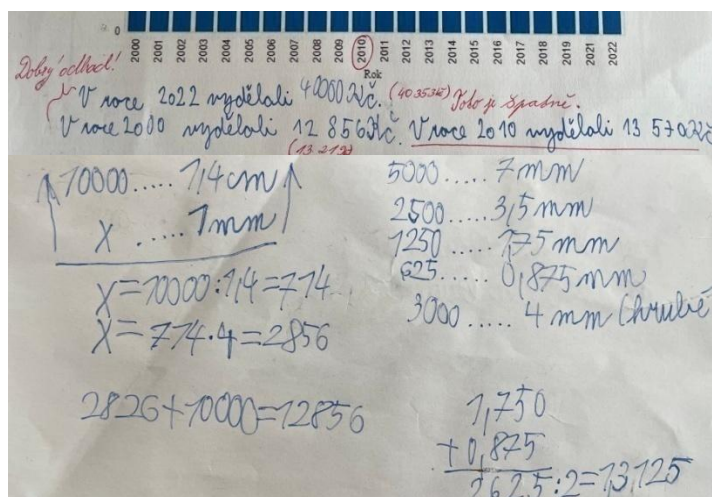 0
2000 2001 2002 2003 2004 2005 2006 2007 2008 2009 2010 2011 2012 2013 2014 2015 2016 2017 2018 2019 2021 2022
Rok
Dobrý odhad!
V roce 2022 vydělali 40000Kč. (40353Kč) Toto je špatně.
V roce 2000 vydělali 12 856Kč. V roce 2010 vydělali 13 570Kč
(13 219)
10000 ..... 1,4cm
X ..... 1mm
X=10000:1,4=714
X=714·4=2856
2826+10000=12856
5000 ..... 7mm
2500 ..... 3,5mm
1250 ..... 1,75mm
625 ..... 0,875mm
3000 ..... 4mm (hrubě
1,750
+0,875
2625:2=1,3125